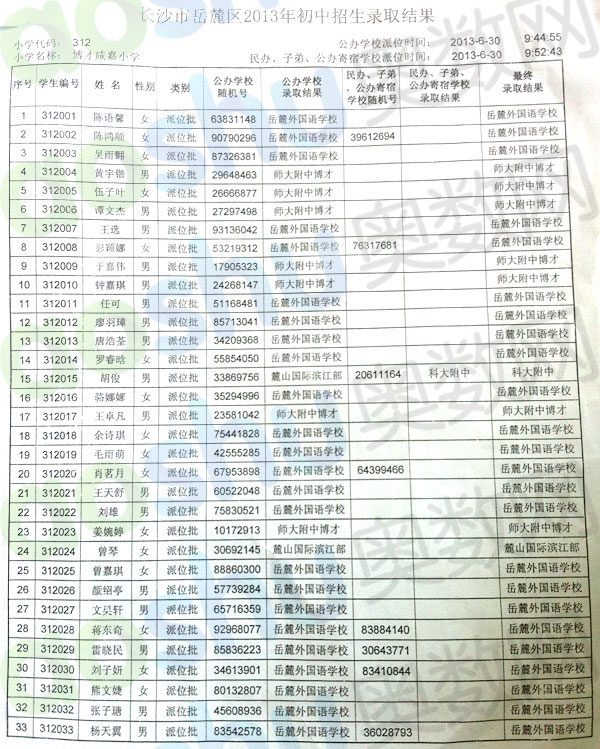 长沙市岳麓区2013年初中招生录取结果
小学代码: 312 公办学校派位时间: 2013-6-30 9:44:55
小学名称: 博才咸嘉小学 民办、子弟、公办寄宿学校派位时间: 2013-6-30 9:52:43
序号 学生编号 姓 名 性别 类别 公办学校随机号 公办学校录取结果 民办、子弟、公办寄宿学校随机号 民办、子弟、公办寄宿学校录取结果 最终录取结果
1 312001 陈语馨 女 派位批 63831148 岳麓外国语学校 岳麓外国语学校
2 312002 陈鸿顺 女 派位批 90790296 岳麓外国语学校 39612694 岳麓外国语学校
3 312003 吴雨翾 女 派位批 87326381 岳麓外国语学校 岳麓外国语学校
4 312004 黄宇锴 男 派位批 29648463 师大附中博才 师大附中博才
5 312005 伍子叶 女 派位批 26666877 师大附中博才 师大附中博才
6 312006 谭文杰 男 派位批 27297498 师大附中博才 师大附中博才
7 312007 王选 男 派位批 93136042 岳麓外国语学校 岳麓外国语学校
8 312008 彭颖娜 女 派位批 53219312 岳麓外国语学校 76317681 岳麓外国语学校
9 312009 于嘉伟 男 派位批 17905323 师大附中博才 师大附中博才
10 312010 钟嘉琪 男 派位批 24268147 师大附中博才 师大附中博才
11 312011 任可 男 派位批 51168481 岳麓外国语学校 岳麓外国语学校
12 312012 廖羽璋 男 派位批 85713041 岳麓外国语学校 岳麓外国语学校
13 312013 唐浩荃 男 派位批 34209368 岳麓外国语学校 岳麓外国语学校
14 312014 罗睿晗 女 派位批 55854050 岳麓外国语学校 岳麓外国语学校
15 312015 胡俊 男 派位批 33869756 麓山国际滨江部 20611164 科大附中 科大附中
16 312016 骆娜娜 女 派位批 35294996 岳麓外国语学校 岳麓外国语学校
17 312017 王卓凡 男 派位批 23581042 师大附中博才 师大附中博才
18 312018 余诗琪 女 派位批 75441828 岳麓外国语学校 岳麓外国语学校
19 312019 毛雨萌 女 派位批 42555285 岳麓外国语学校 岳麓外国语学校
20 312020 肖茗月 女 派位批 67953898 岳麓外国语学校 64399466 岳麓外国语学校
21 312021 王天舒 男 派位批 60522048 岳麓外国语学校 岳麓外国语学校
22 312022 刘雄 男 派位批 75830521 岳麓外国语学校 岳麓外国语学校
23 312023 姜婉婷 女 派位批 10172913 师大附中博才 师大附中博才
24 312024 曾琴 女 派位批 30692145 麓山国际滨江部 麓山国际滨江部
25 312025 曾嘉琪 女 派位批 88860300 岳麓外国语学校 岳麓外国语学校
26 312026 颜绍亭 男 派位批 57739284 岳麓外国语学校 岳麓外国语学校
27 312027 文昊轩 男 派位批 65716359 岳麓外国语学校 岳麓外国语学校
28 312028 蒋东奇 女 派位批 92968077 岳麓外国语学校 83884140 岳麓外国语学校
29 312029 雷晓民 男 派位批 85836223 岳麓外国语学校 30643771 岳麓外国语学校
30 312030 刘子妍 女 派位批 34613901 岳麓外国语学校 83410844 岳麓外国语学校
31 312031 熊文婕 女 派位批 80132807 岳麓外国语学校 岳麓外国语学校
32 312032 张子瑭 男 派位批 45608936 岳麓外国语学校 岳麓外国语学校
33 312033 杨天翼 男 派位批 83542578 岳麓外国语学校 36028793 岳麓外国语学校
aoshu奥数网